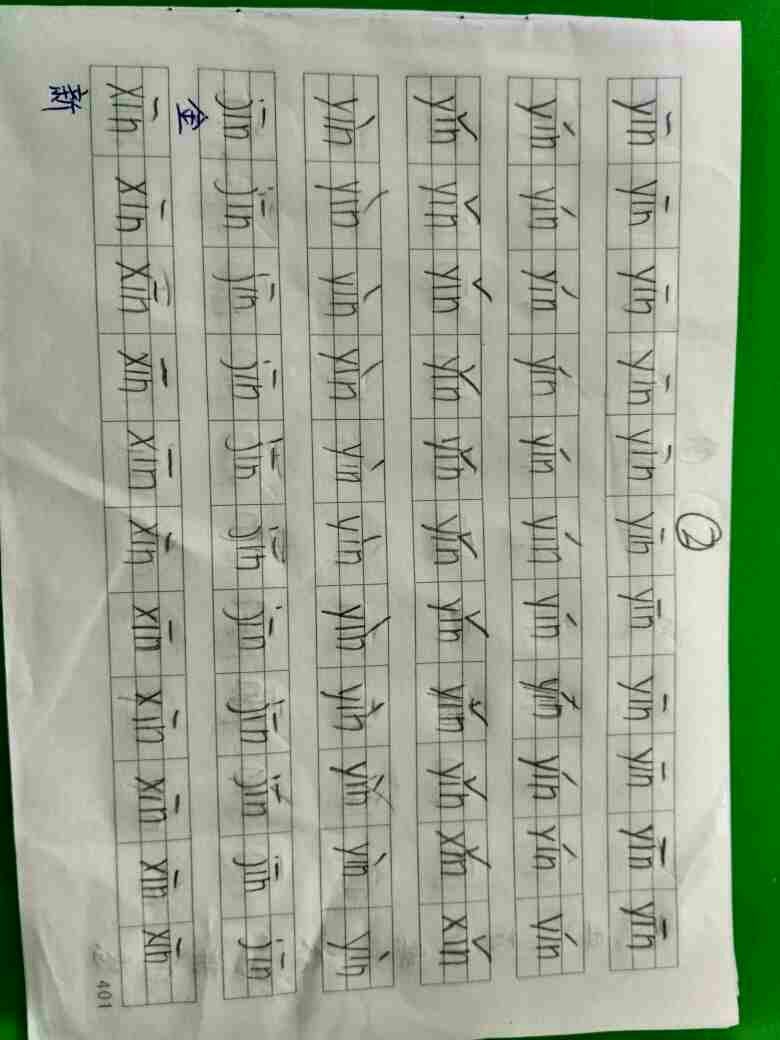 ②
yīn yīn yīn yīn yīn yīn yīn yīn yīn yīn yīn
yín yín yín yín yín yín yín yín yín yín yín
yǐn yǐn yǐn yǐn yǐn yǐn yǐn yǐn yǐn xǐn xǐn
yìn yìn yìn yìn yìn yìn yìn yìn yìn yìn yìn
jīn jīn jīn jīn jīn jīn jīn jīn jīn jīn jīn
金
xīn xīn xīn xīn xīn xīn xīn xīn xīn xīn xīn
新
401